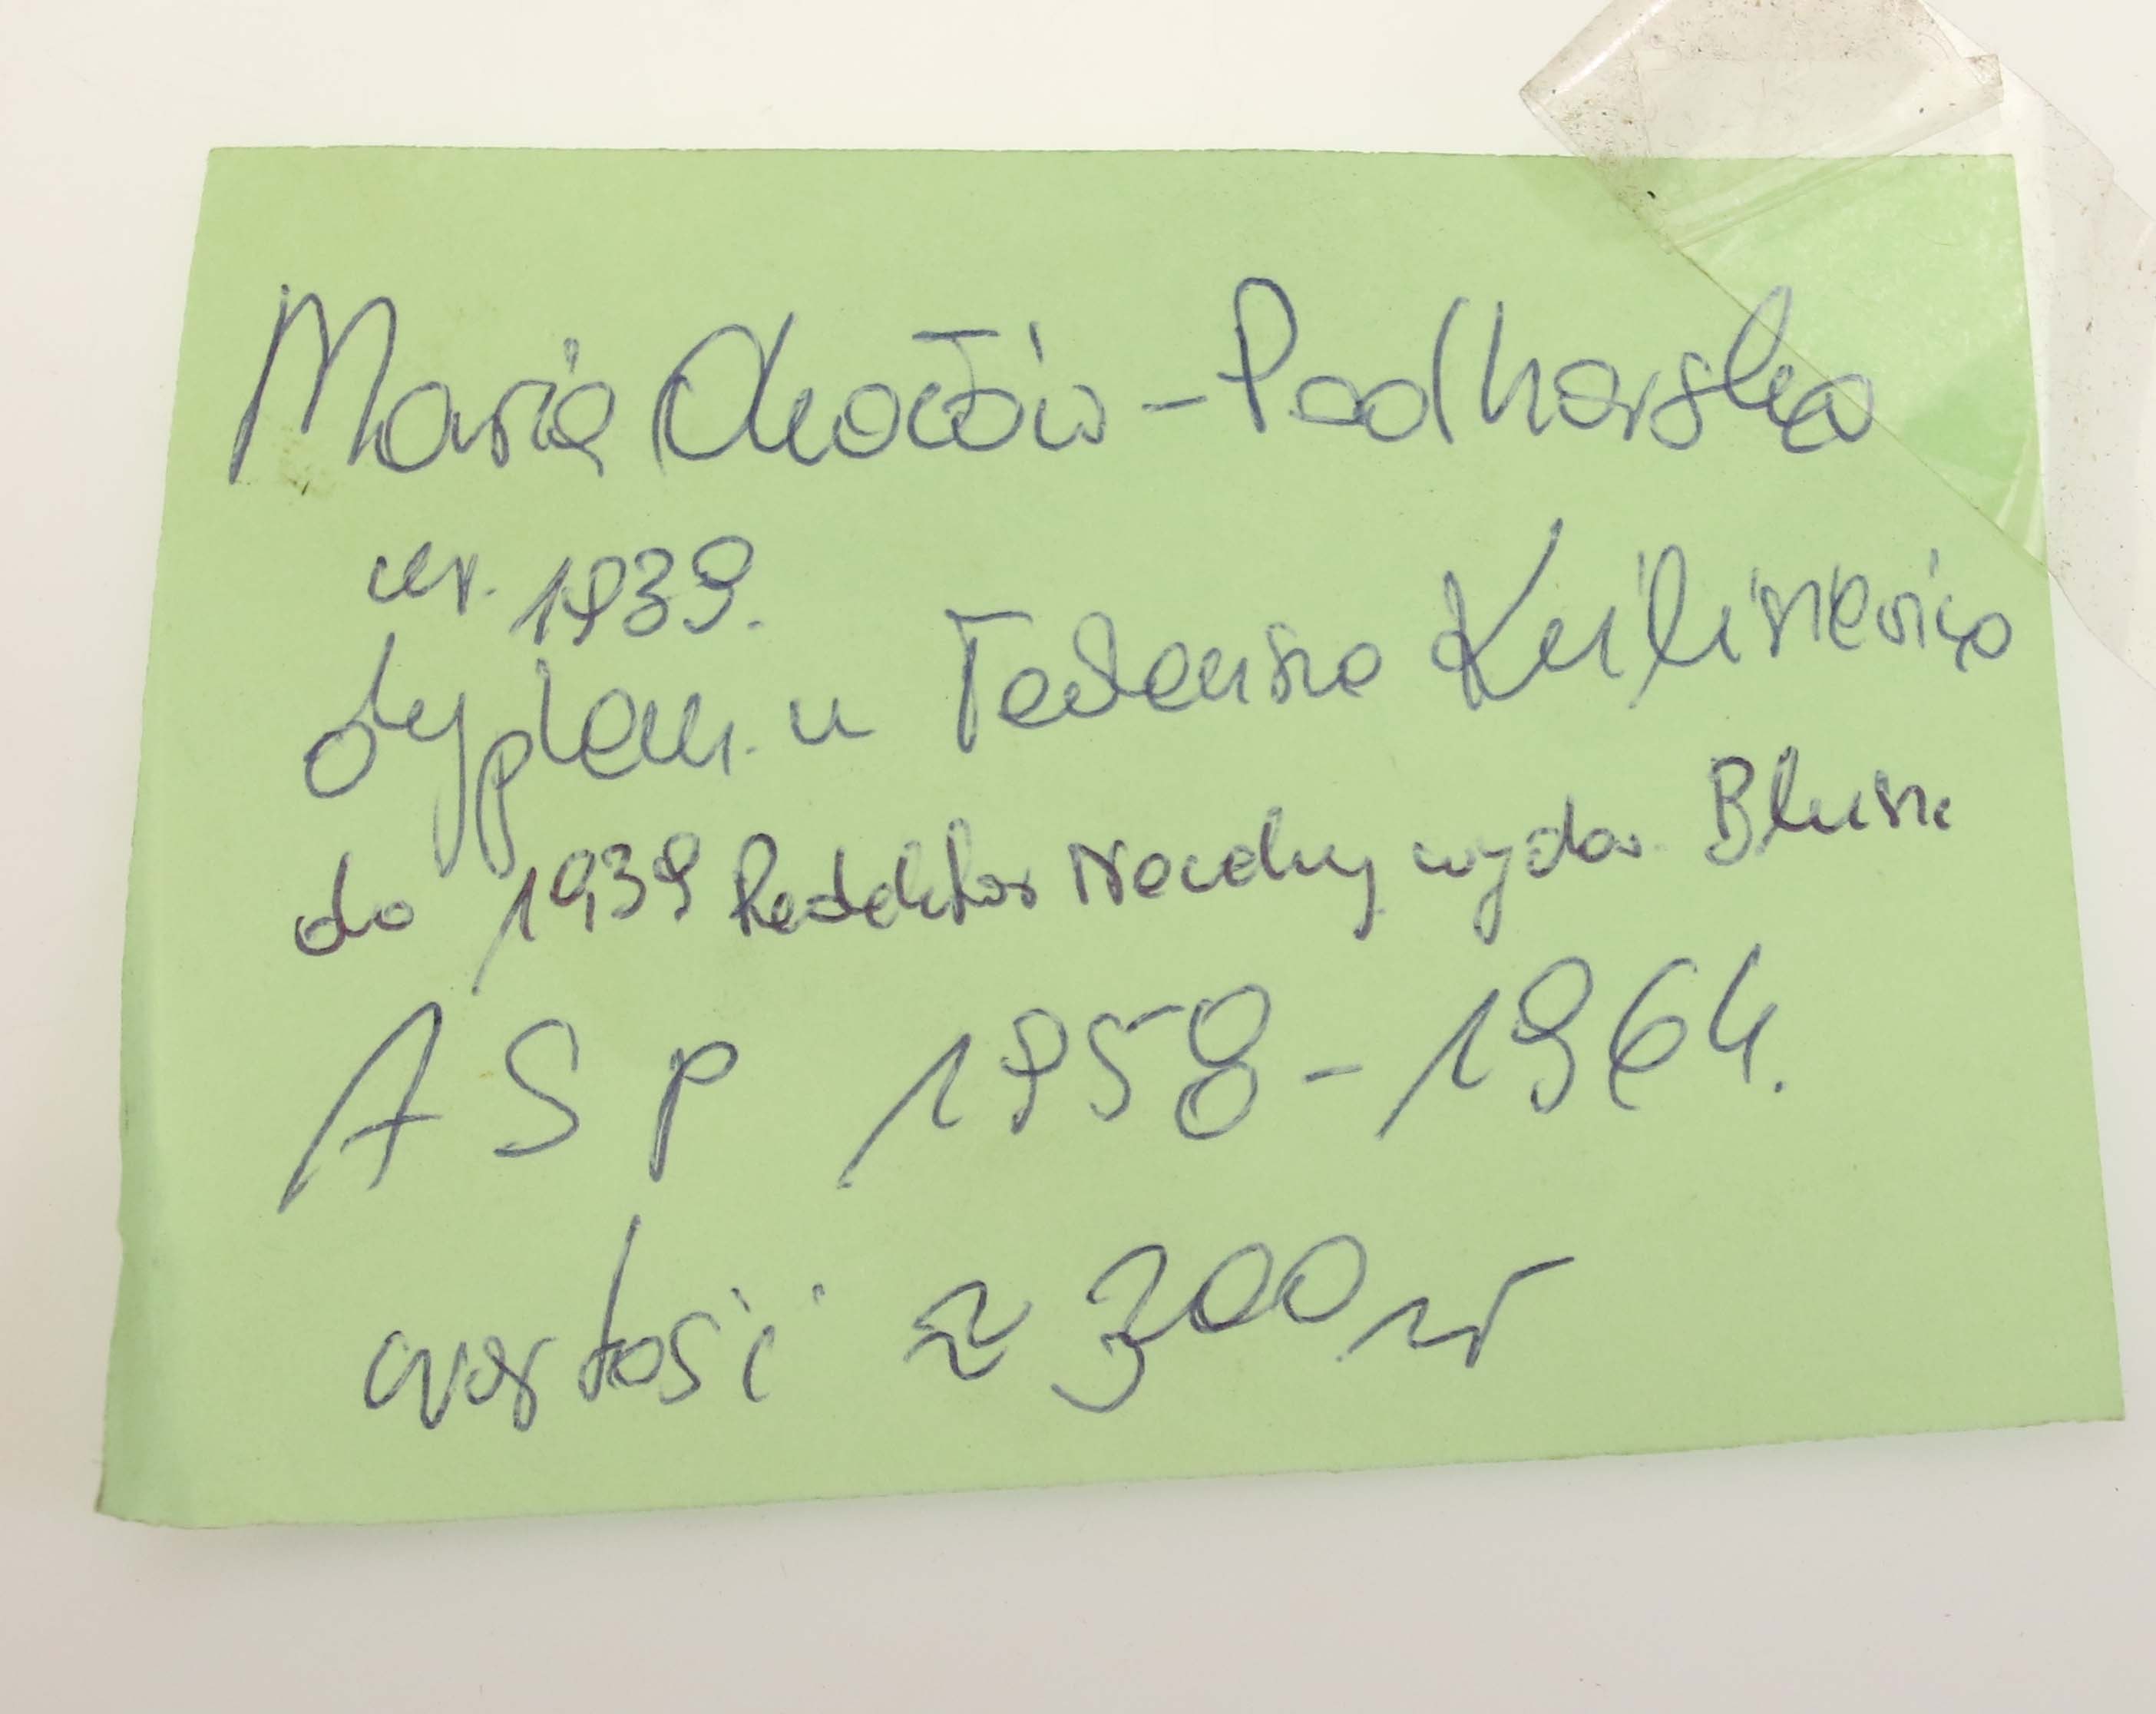 Maria Okołów-Podhorska
ur. 1939.
dyplom. u Tadeusza Kulisiewicza
do 1939 Redaktor Naczelny wydaw. Bluszcz
ASP 1958-1964.
wartość ≈ 300 zł